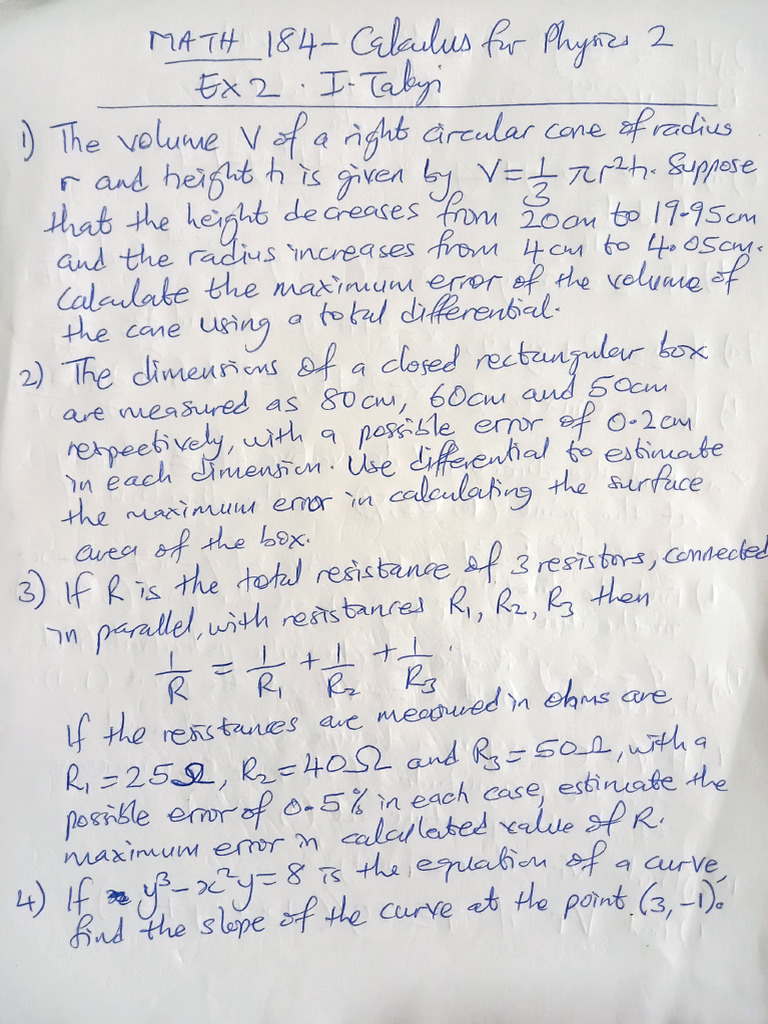 MATH 184 - Calculus for Physics 2
Ex 2. I. Takyi
1) The volume V of a right circular cone of radius
r and height h is given by V = 1/3 πr²h. Suppose
that the height decreases from 20cm to 19.95cm
and the radius increases from 4cm to 4.05cm.
Calculate the maximum error of the volume of
the cone using a total differential.
2) The dimensions of a closed rectangular box
are measured as 80cm, 60cm and 50cm
respectively, with a possible error of 0.2cm
in each dimension. Use differential to estimate
the maximum error in calculating the surface
area of the box.
3) If R is the total resistance of 3 resistors, connected
in parallel, with resistances R₁, R₂, R₃ then
1/R = 1/R₁ + 1/R₂ + 1/R₃.
If the resistances are measured in ohms are
R₁ = 25Ω, R₂ = 40Ω and R₃ = 50Ω, with a
possible error of 0.5% in each case, estimate the
maximum error in calculated value of R.
4) If y³ - x²y = 8 is the equation of a curve,
find the slope of the curve at the point (3, -1).